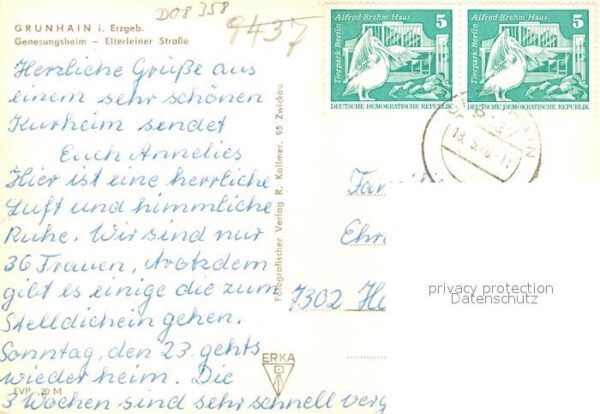 GRUNHAIN i. Erzgeb.
Genesungsheim – Elterleiner Straße
DO8 358
9437
Herzliche Grüße aus
einem sehr schönen
Kurheim sendet
Euch Annelies
Hier ist eine herrliche
Luft und himmliche
Ruhe. Wir sind nur
36 Frauen, trotzdem
gibt es einige die zum
Stelldichein gehen.
Sonntag, den 23. gehts
wieder heim. Die
3 Wochen sind sehr schnell verg
EVP -,20 M
Fotografischer Verlag R. Kallmer, 95 Zwickau
ERKA
Tierpark Berlin
Alfred-Brehm-Haus
5
DEUTSCHE DEMOKRATISCHE REPUBLIK
Tierpark Berlin
Alfred-Brehm-Haus
5
DEUTSCHE DEMOKRATISCHE REPUBLIK
Fami
Ehr
7302 Ha
privacy protection
Datenschutz